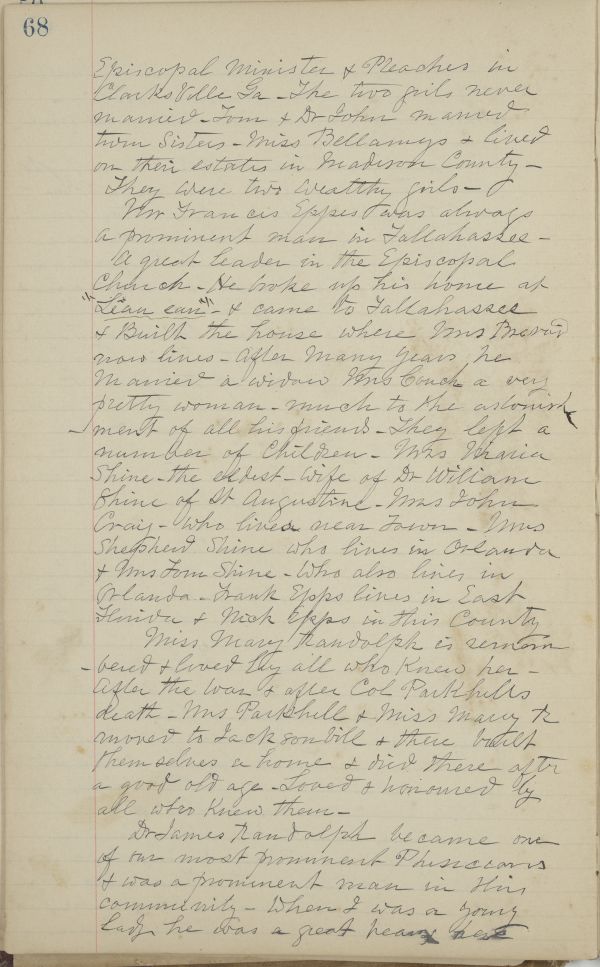 68
Episcopal Minister & Preaches in
Clarksville Ga - The two girls never
married - Tom & Dr John married
twin Sisters - Miss Bellamys & lived
on their estates in Madison County -
They were two wealthy girls -
Mr Francis Eppes was always
a prominent man in Tallahassee -
A great leader in the Episcopal
Church - He broke up his home at
& came to Tallahassee
& Built the house where Mrs Brevard
now lives - After many years he
married a widow Mrs Couch a very
pretty woman - much to the astonish
- ment of all his friends - They left a
number of Children - Mrs Maria
Shine - the eldest - wife of Dr William
Shine of St Augustine - Mrs John
Craig - who lives near Town - Mrs
Shepherd Shine who lives in Orlanda
& Mrs Tom Shine - who also lives in
Orlanda - Frank Epps lives in East
Florida & Nick Epps in this County
Miss Mary Randolph is remem
- bered & loved by all who Knew her -
After the War & after Col Parkhills
death - Mrs Parkhill & Miss Mary R
moved to Jacksonvill & there built
themselves a home & died there after
a good old age - Loved & honoured by
all who Knew them -
Dr James Randolph became one
of our most prominent Phisicians
& was a prominent man in this
community - When I was a young
lady he was a great